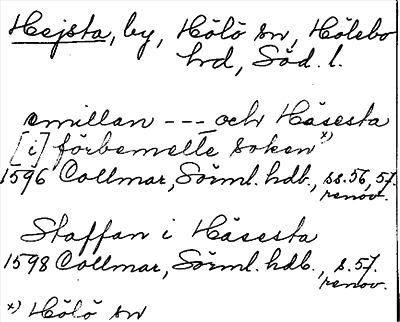 Hejsta, by, Hölö sn, Hölebo
hd, Söd. l.
emillan --- och Häsesta
[i] förbemelte soken x)
1596 Collmar, Sörml. hdb., ss. 56, 57.
renov.
Staffan i Häsesta
1598 Collmar, Sörml. hdb., s. 57.
renov.
x) Hölö sn